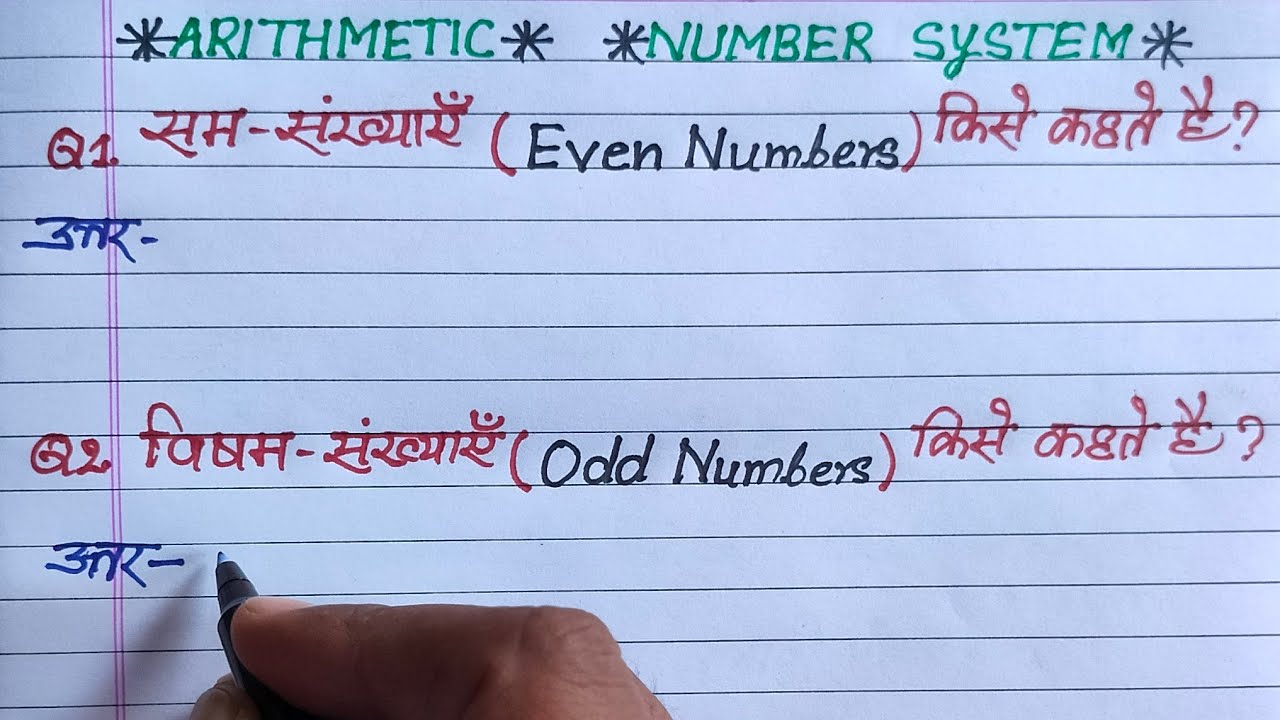 *ARITHMETIC* *NUMBER SYSTEM*
Q1. सम-संख्याएँ (Even Numbers) किसे कहते है?
उत्तर-
Q2. विषम-संख्याएँ (Odd Numbers) किसे कहते है?
उत्तर-